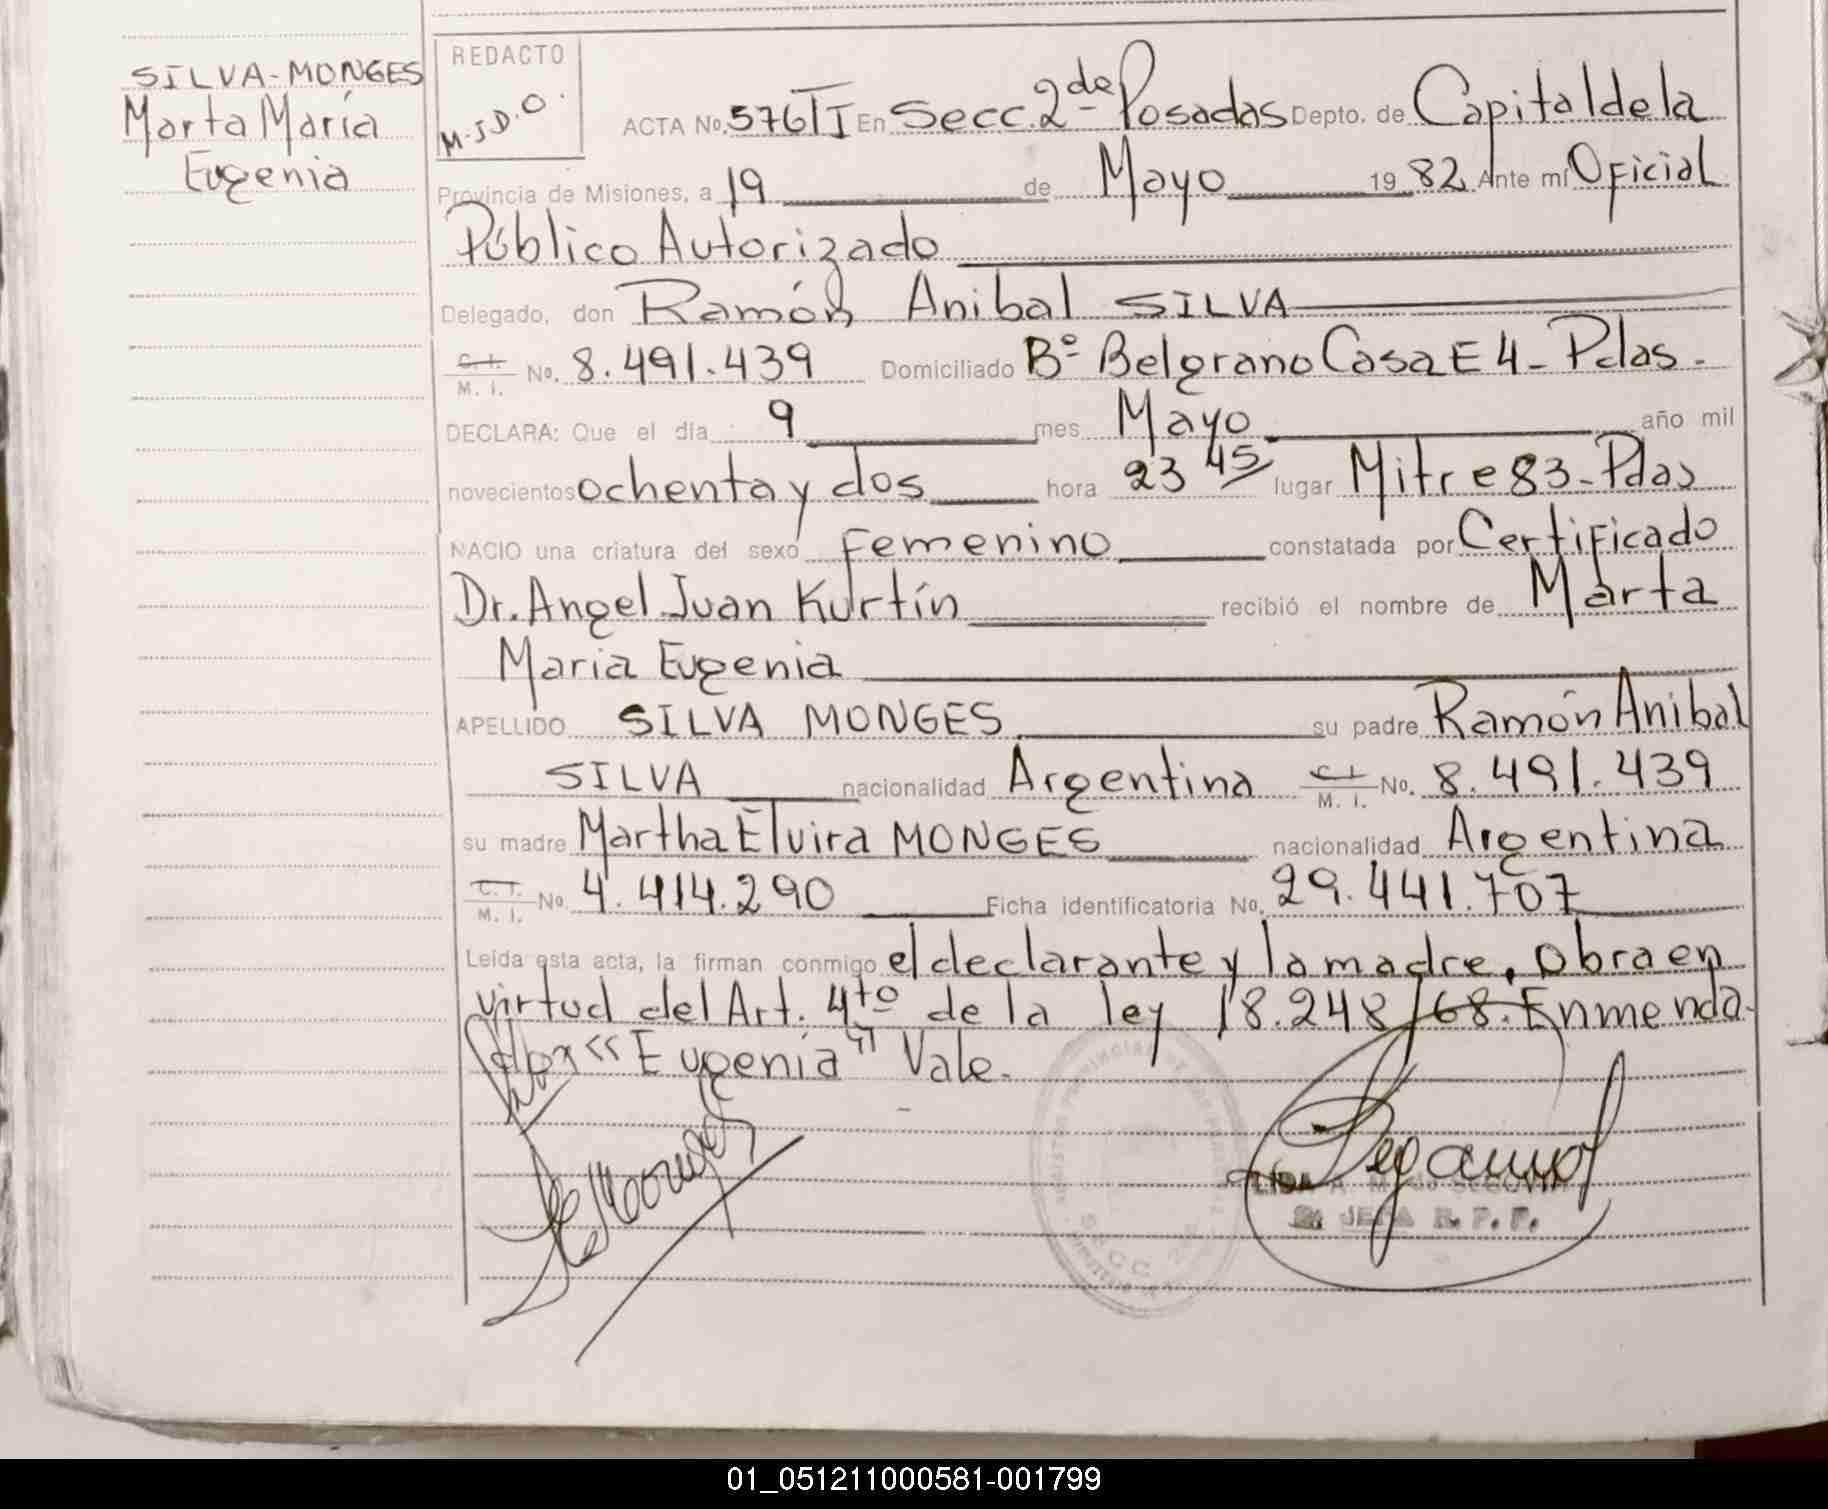 SILVA-MONGES
Marta María
Eugenia
REDACTO
M.J.D.O.
ACTA No. 576 TI En Secc. 2da de Posadas Depto. de Capital de la
Provincia de Misiones, a 19 de Mayo 1982 Ante mí Oficial
Público Autorizado
Delegado, don Ramón Anibal SILVA
C.I. M. I. No. 8.491.439 Domiciliado Bº Belgrano Casa E 4 - Pdas.
DECLARA: Que el día 9 mes Mayo año mil
novecientos ochenta y dos hora 23 45 lugar Mitre 83 - Pdas
NACIO una criatura del sexo Femenino constatada por Certificado
Dr. Angel Juan Kurtín recibió el nombre de Marta
Maria Eugenia
APELLIDO SILVA MONGES su padre Ramón Anibal
SILVA nacionalidad Argentina C.I. M. I. No. 8.491.439
su madre Martha Elvira MONGES nacionalidad Argentina
C.I. M. I. No. 4.414.290 Ficha identificatoria No. 29.441.707
Leída esta acta, la firman conmigo el declarante y la madre, obra en
virtud del Art. 4to de la ley 18.248/68. Enmenda-
do "Eugenia" Vale.
2ª JEFA R. P. P.
01_051211000581-001799